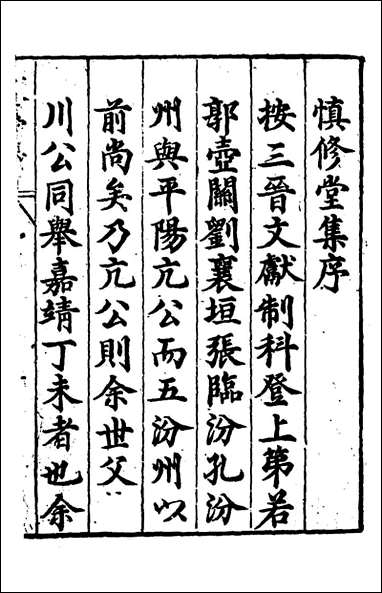 慎修堂集序
按三晉文獻制科登上第若
郭壺關劉襄垣張臨汾孔汾
州與平陽亢公而五汾州以
前尚矣乃亢公則余世父
川公同舉嘉靖丁未者也余